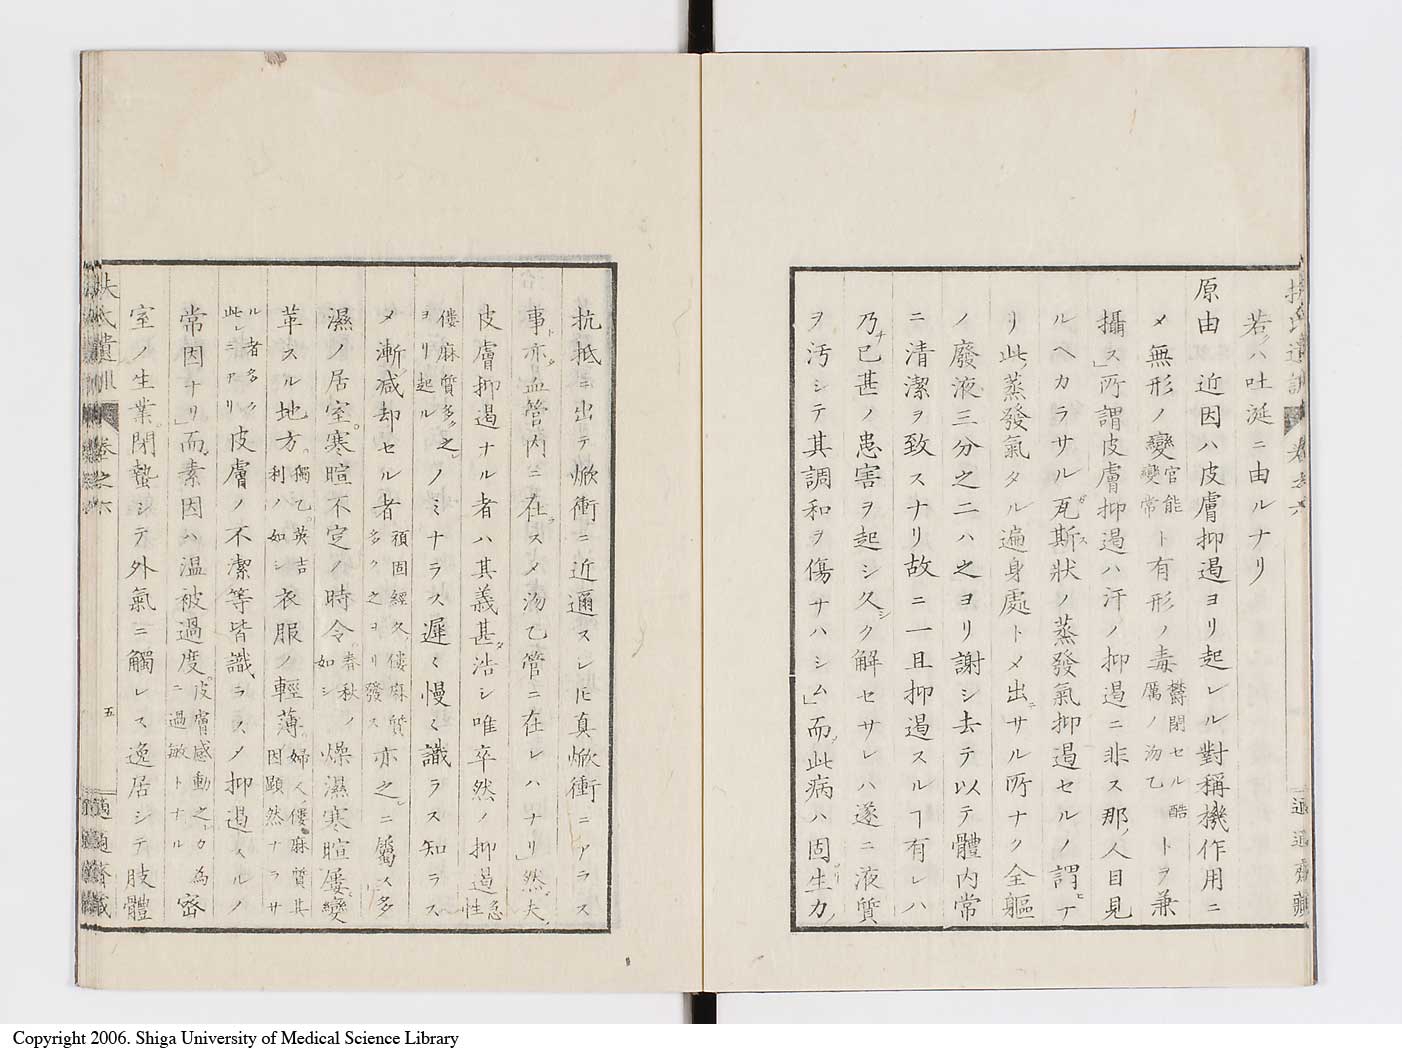 若クハ吐涎ニ由ルナリ
原由 近因ハ皮膚抑遏ヨリ起レル對稱機作用ニ
メ無形ノ變官能變常ト有形ノ毒鬱閉セル酷厲ノ汤乙トヲ兼
攝ス」所謂皮膚抑遏ハ汗ノ抑遏ニ非ス那ノ人目見
ルヘカラサル瓦斯狀ノ蒸發氣抑遏セルノ謂ヒナ
リ此蒸發氣タル遍身處トメ出ニサル所ナク全軀
ノ廢液三分之二ハ之ヨリ謝シ去テ以テ體内常
ニ清潔ヲ致スナリ故ニ一旦抑遏スルヿ有レハ
乃チ已甚ノ患害ヲ起シ久シク解セサレハ遂ニ液質
ヲ汚シテ其調和ヲ傷サハシム」而ノ此病ハ固ヨリ生力ノ
扶氏遺訓 卷之六
適適齋藏
抗抵ニ出テ焮衝ニ近邇スレ𪜈真焮衝ニアラス
事ト亦タ血管内ニ在ラスメ汤乙管ニ在レハナリ」然レ夫ノ
皮膚抑遏ナル者ハ其義甚タ浩シ唯卒然ノ抑遏急性
僂麻質多クハ之レヨリ起ルノミナラス遲々慢々識ラス知ラス
メ漸ク減却セル者頑固經久ノ僂麻質多ク之ヨリ發ス亦之レニ屬ス多
濕ノ居室。寒暄不定ノ時令春秋ノ如シ燥濕寒暄屢變
革スル地方。獨乙。英吉利ハ如シ衣服ノ輕薄。婦人ノ僂麻質其因顯然ナラサ
ル者多ク此レニアリ皮膚ノ不潔等皆識ラスメ抑遏スルノ
常因ナリ」而ノ素因ハ温被過度。皮膚感動之レカ為ニ過敏トナル密
室ノ生業。閉蟄シテ外氣ニ觸レス逸居シテ肢體
扶氏遺訓 卷之六
五
適適齋藏
Copyright 2006. Shiga University of Medical Science Library